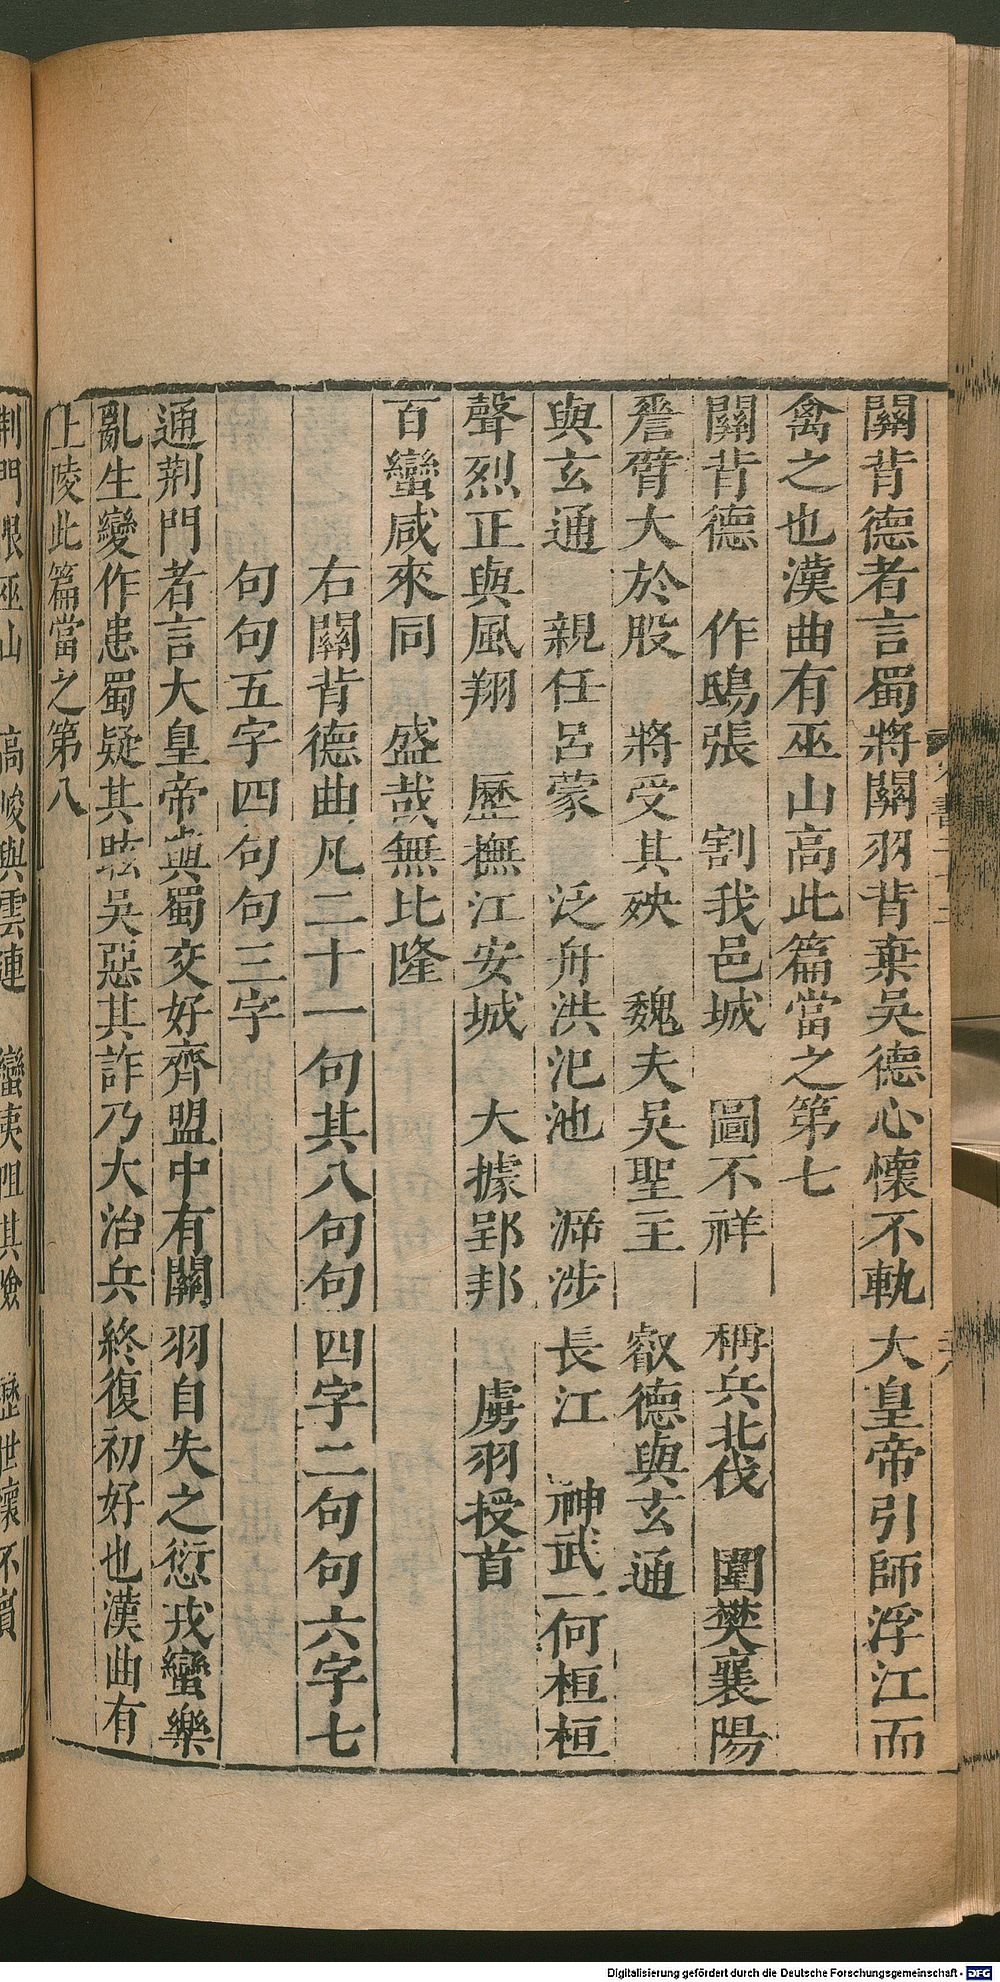 關背德者言蜀將關羽背棄吳德心懷不軌大皇帝引師浮江而
禽之也漢曲有巫山高此篇當之第七
關背德　作鴟張　割我邑城　圖不祥　稱兵北伐　圍樊襄陽
臂大於股　將受其殃　魏夫吳聖主　叡德與玄通
與玄通　親任呂蒙　泛舟洪氾池　泝涉長江　神武一何桓桓
聲烈正與風翔　歷撫江安城　大據郢邦　虜羽授首
百蠻咸來同　盛哉無比隆
右關背德曲凡二十一句其八句句四字二句句六字七
句句五字四句句三字
通荆門者言大皇帝與蜀交好齊盟中有關羽自失之愆戎蠻樂
亂生變作患蜀疑其眩吳惡其詐乃大治兵終復初好也漢曲有
上陵此篇當之第八
荆門限巫山　高峻與雲連　蠻夷阻其險　歷世懷不賓
Digitalisierung gefördert durch die Deutsche Forschungsgemeinschaft - DFG